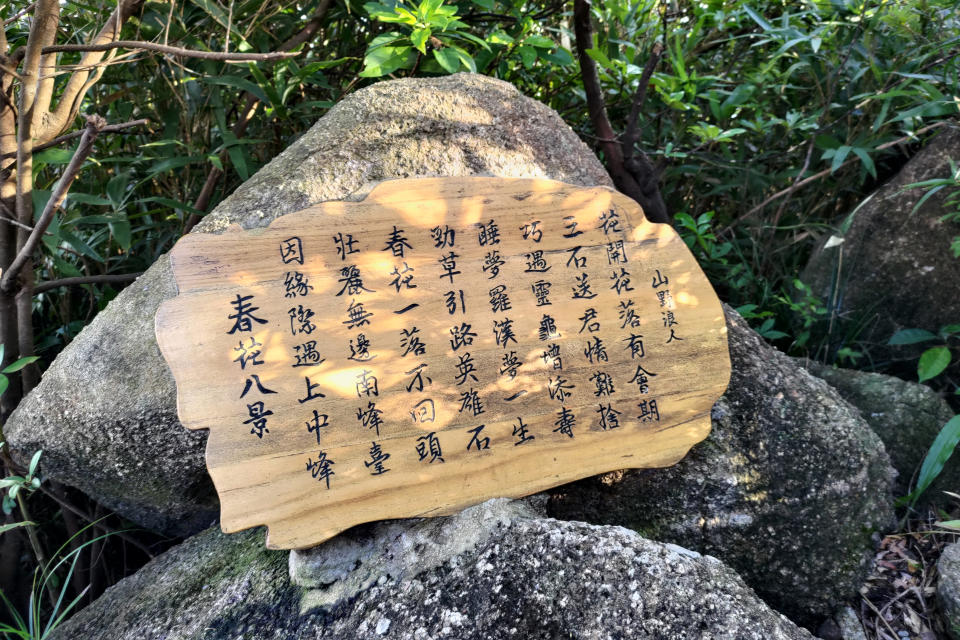 山野浪人
花開花落有會期
三石送君情難捨
巧遇靈龜增添壽
睡夢羅漢夢一生
勁草引路英雄石
春花一落不回頭
壯麗無邊南峰臺
因緣際遇上中峰
春花八景